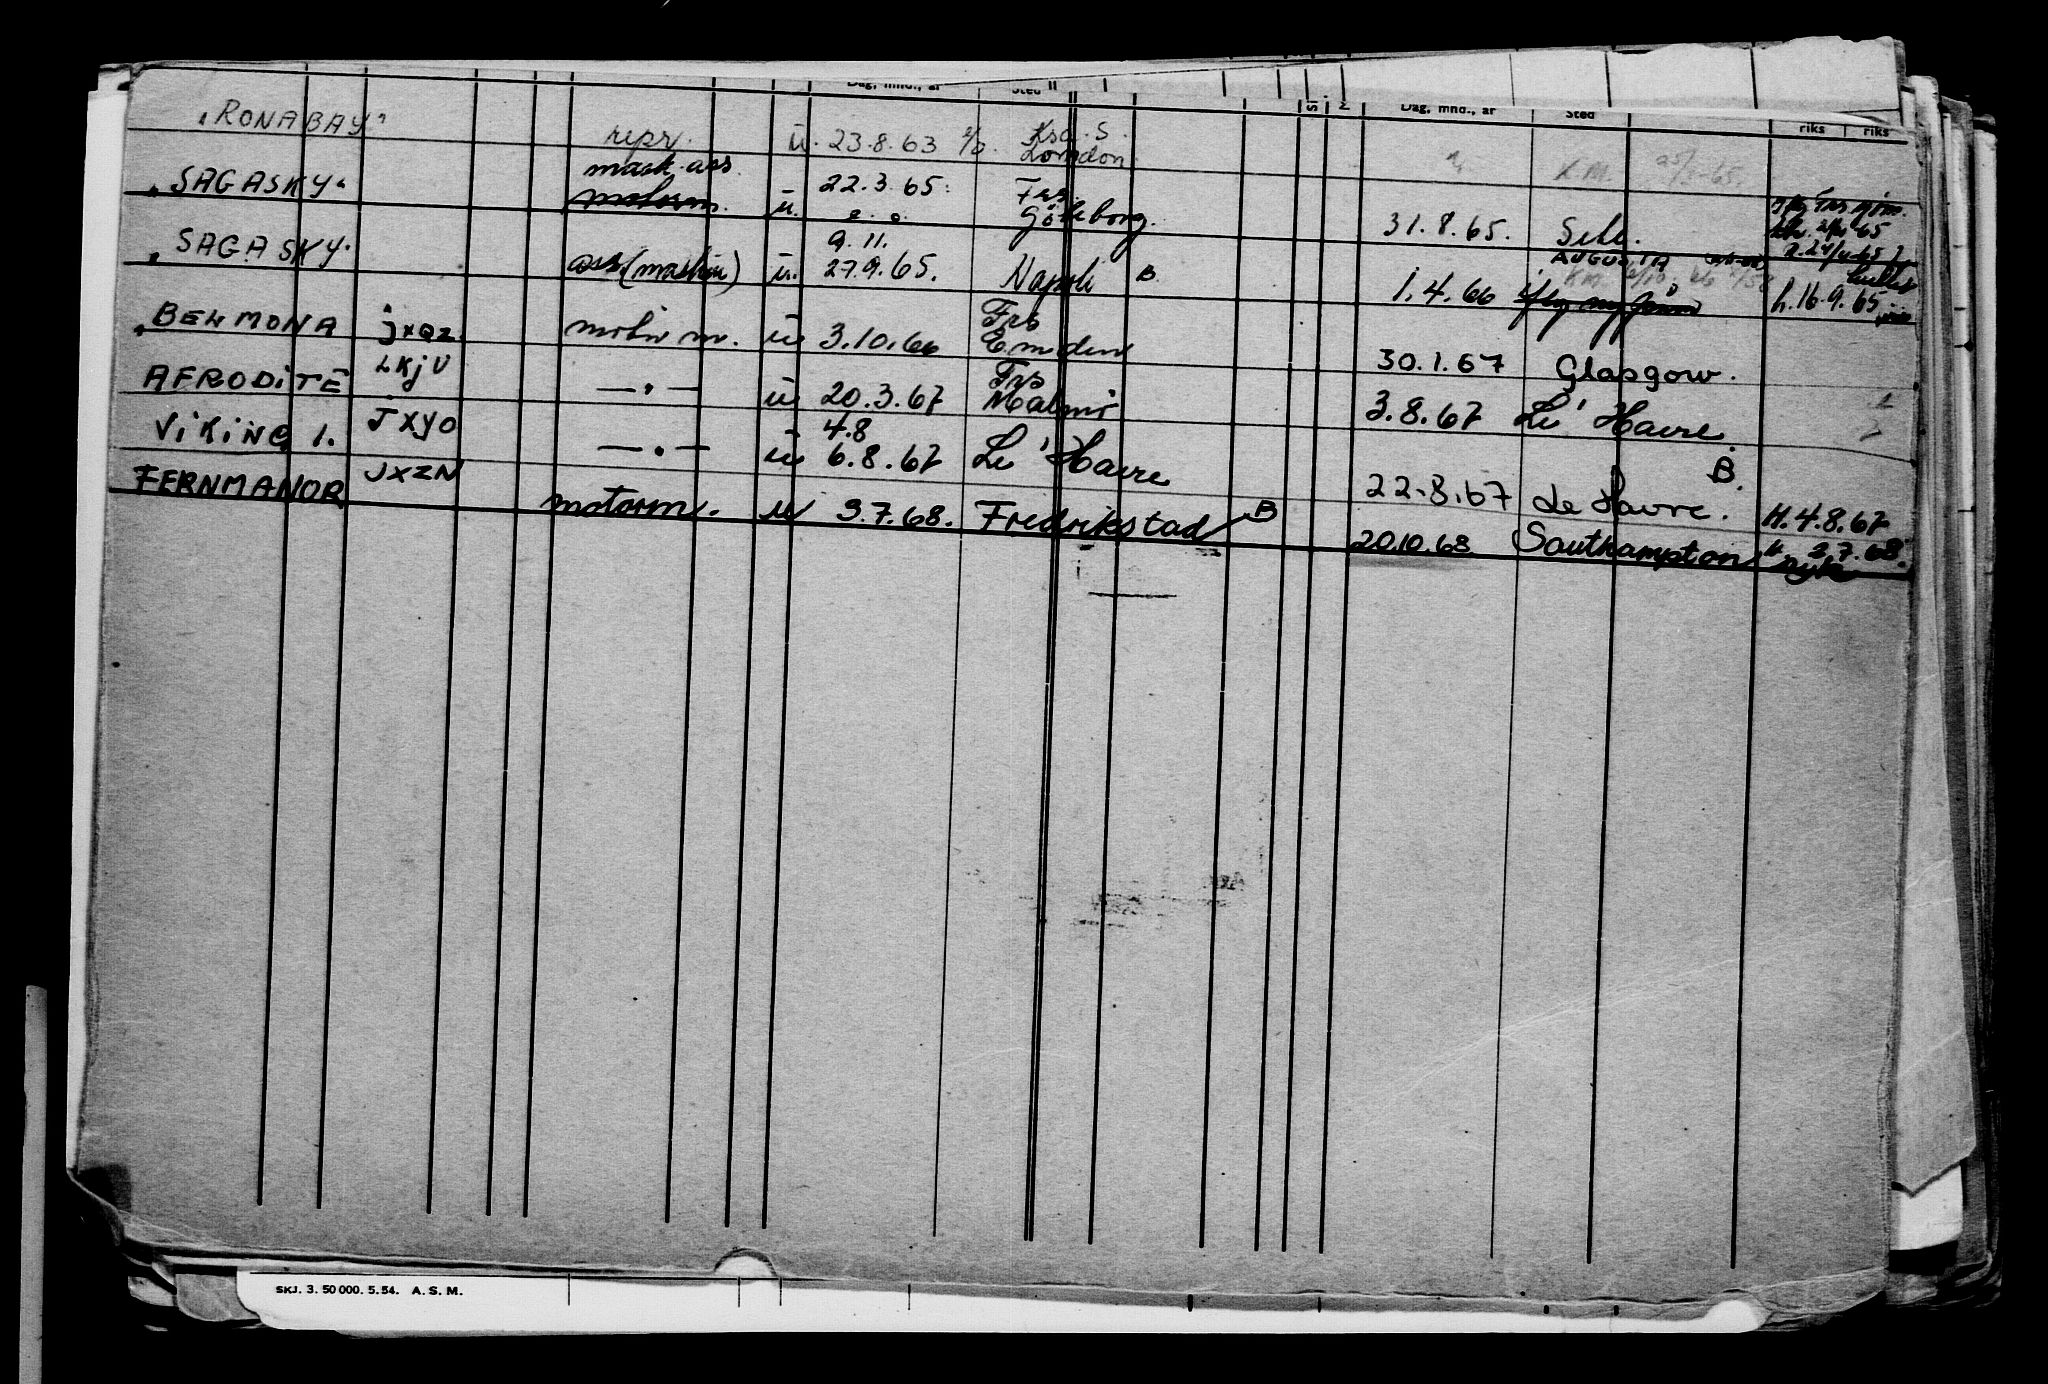 Dag, mnd., år Sted Dag, mnd., år Sted riks riks
"RONABAY" repr. u. 23.8.63 Krs. S. London
"SAGASKY" mask. ass. motorm. u. 22.3.65. Frs. Göteborg. 31.8.65.
"SAGASKY" ass. (maskin) u. 9.11. 27.9.65. Napoli B. 1.4.66 AUGUSTA h. 16.9.65
"BELMONA jxQz motor m. u 3.10.66 Frs Emden 30.1.67 Glasgow.
AFRODiTE LKjV — " — u 20.3.67 Frs Malmö 3.8.67 Le' Havre.
ViKiNG 1. JXYO — " — u 4.8 6.8.67 Le' Havre B. 22.8.67 Le Havre. H. 4.8.67
FERNMANOR JXZN motorm. u 3.7.68. Fredrikstad B 20.10.68 Southampton " 3.7.68. syk
SKJ. 3. 50 000. 5. 54. A. S. M.